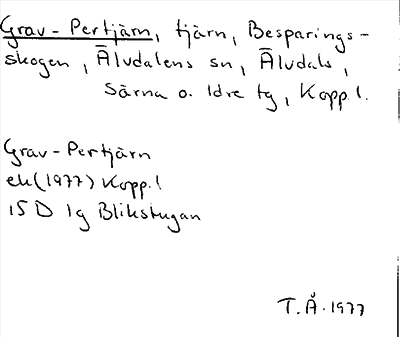 Grav-Pertjärn, tjärn, Besparings-
skogen, Älvdalens sn, Älvdals,
Särna o. Idre tg, Kopp.l.
Grav-Pertjärn
ek(1977) Kopp.l
15D 1g Blikstugan
T.Å.1977